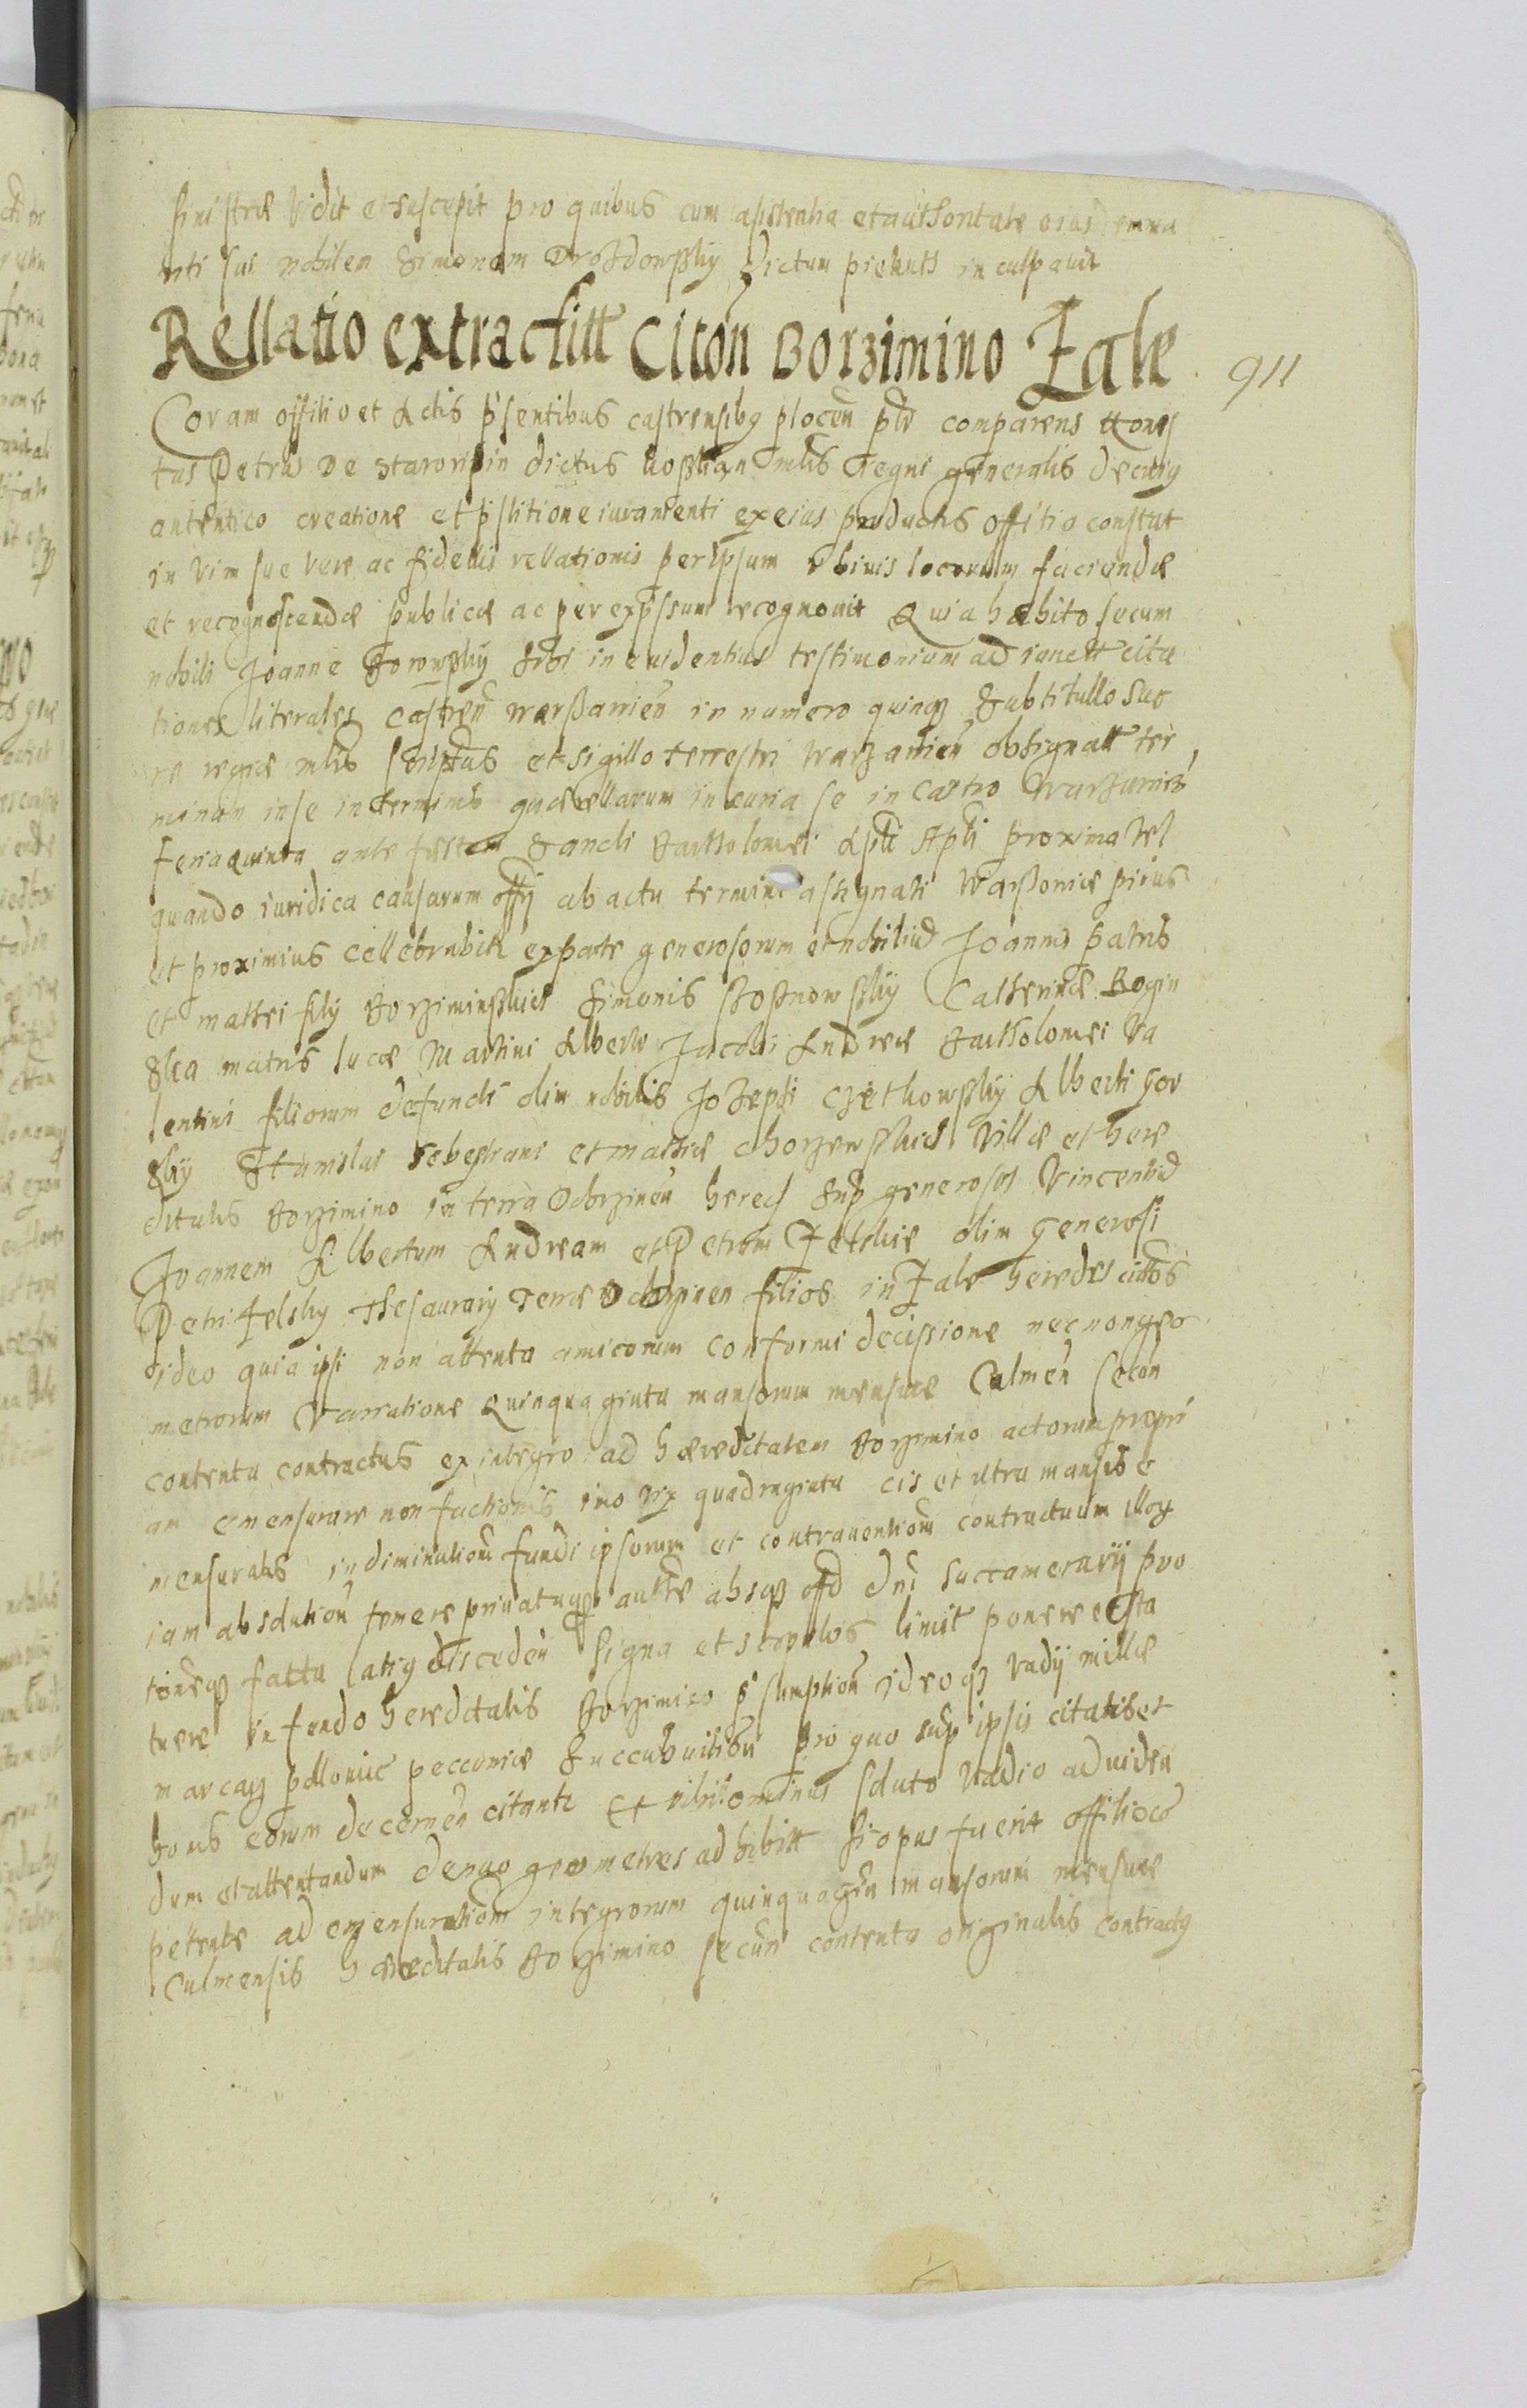 sinistrae vidit et suscepit pro quibus cum assistentia et authoritate eius
nti sui nobilem Simonem Drozdowsky dictum pienuts inculpavit
Rellatio extract citon Borzimino Jale
911
Coram offitio et Actis psentibus castrensibg plocen comparens Hones
tus Petrus de Staroripin dictus mlis regni generalis de cuig
autentico creatione et pstitione iuramenti ex eius productis offitio constat
in vim sue vere ac fidelis rellationis per ipsum ubivis locorum faciendae
et recognoscendae publicae ac per expssum recognovit Quia habito secum
nobili Joanne Borowsky sibi in evidentius testimonium ad iunctt cita
tiones literales castren warssavien in numero quinqz sub titullo sac
re regiae mtis scriptas et sigillo terrestri warzavien obsignatt ter
minum in se in terminis quaerellarum in curia se in castro warzavien
feria quinta ante festum Sancti Bartholomei Apli proxima vel
quando iuridica causarum offij ab actu termini assignati Warssoviae prius
et proximius cellebrabitr ex parte generosorum et nobiliu Joannis patris
et Mathei filij Borziminskich Simonis Catherinae Rogin
ska matris lucae Martini Alberti Jacobi Andreae Bartholomei Va
lentini filiorum defuncti olim nobilis Josephi Czethowsky Alberti Gor
sky Stanislai Sebestiani et Mathiae chorzewskich villae et here
ditatis Borzimino in terra Dobrzinen hered sup generosos Vincentiu
Joannem Albertum Andream et Petrum Jelskie olim generosi
Petri Jelsky Thesaurarij Terrae Dobrzinen filios in Jale heredes cittos
ideo quia ipsi non attenta amicorum conformi decissione nec non geo
metrorum narratione Quinquaginta mansorum mensurae Culmen secun
contenta contractus ex integro ad haereditatem Borzimino actorum propri
am emensurare non factionis imo vix quadraginta cis et ultra mansis e
mensuratis in diminution fundi ipsorum et contravention contractuum illog
iam absolution temere privatagz autte absqz offo dni succamerarij pro
tioneqz facta latig disceden signa et scopulos limit ponere et sta
tuere in fundo hereditatis Borzimino psumption ideoqz vadij mille
marcag pollonic peccuniae succubuition pro quo sup ipsis citatis et
bonis eorum decernen citantr Et nihilominus soluto vadio ad viden
dum et attentandum denuo geometres adhibitt si opus fuerit offitioco
petente ad emensuration integrorum quinquagin mansorum mensurae
Culmensis haereditatis Borzimino secun contenta originalis contractg